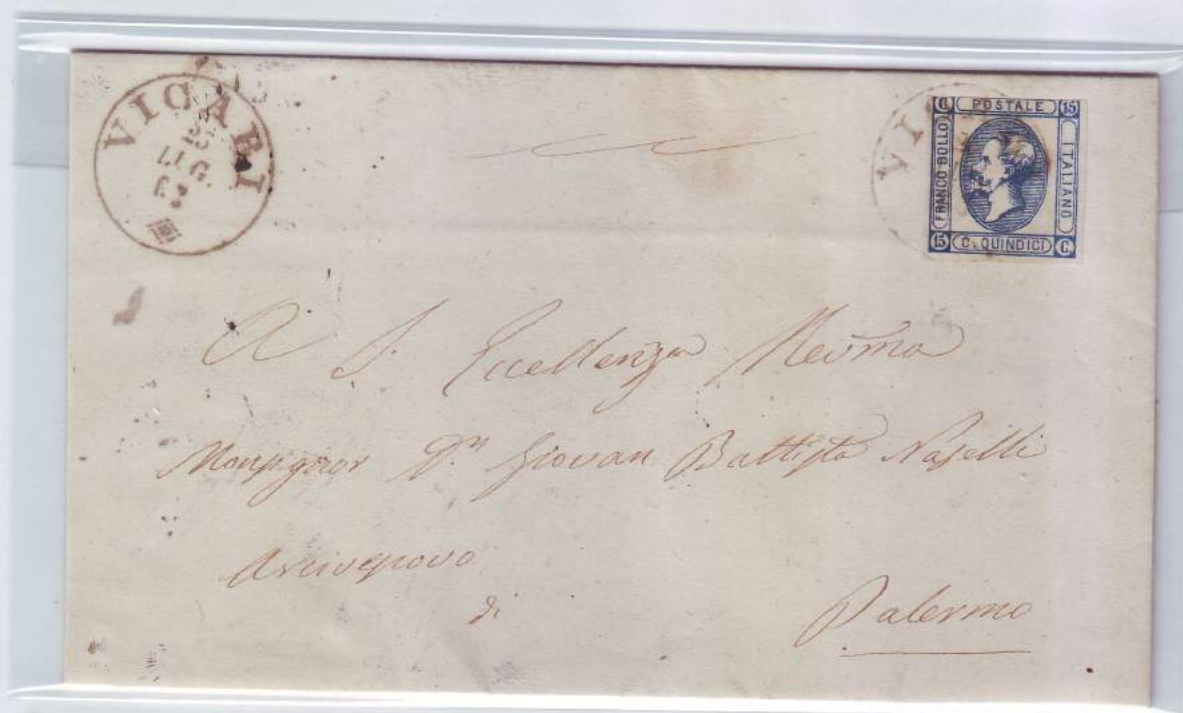 VICARI
25
LUG.
63
VI
C POSTALE 15
FRANCO BOLLO
ITALIANO
15 C. QUINDICI C
A S. Eccellenza Revma
Monsignor Dn Giovan Battista Naselli
Arcivescovo
di
Palermo